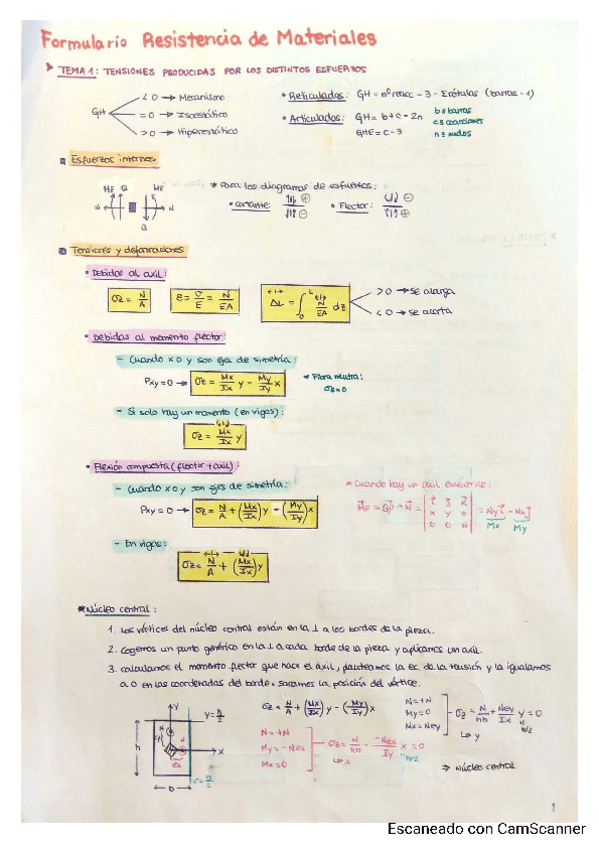 Formulario Resistencia de Materiales
TEMA 1: TENSIONES PRODUCIDAS POR LOS DISTINTOS ESFUERZOS
GH
< 0 → Mecanismo
= 0 → Isostático
> 0 → Hiperestático
• Reticulados: GH = nº reacc - 3 - Σrótulas (barras - 1)
• Articulados: GH = b + c - 2n
GHE = c - 3
b ≡ barras
c ≡ coacciones
n ≡ nudos
Esfuerzos internos
MF Q MF
N N
Q
* Para los diagramas de esfuerzos:
• Cortante: ⊕ ⊖
• Flector: ⊖ ⊕
Tensiones y deformaciones
• Debidas al axil:
σz = N/A
ε = σ/E = N/EA
ΔL = ∫₀ᴸ N/EA dz
> 0 → se alarga
< 0 → se acorta
• Debidas al momento flector:
- Cuando x o y son ejes de simetría:
Pxy = 0 → σz = Mx/Ix y - My/Iy x
* Fibra neutra:
σz = 0
- Si solo hay un momento (en vigas):
σz = Mx/Ix y
• Flexión compuesta (flector + axil):
- Cuando x o y son ejes de simetría:
Pxy = 0 → σz = N/A + (Mx/Ix) y - (My/Iy) x
* Cuando hay un axil excéntrico:
= Ny i - Nx j
Mx My
- En vigas:
σz = N/A + (Mx/Ix) y
* Núcleo central:
1. Los vértices del núcleo central están en la ⊥ a los bordes de la pieza.
2. Cogemos un punto genérico en la ⊥ a cada borde de la pieza y aplicamos un axil.
3. Calculamos el momento flector que hace el axil, planteamos la ec de la tensión y la igualamos
a 0 en las coordenadas del borde. Sacamos la posición del vértice.
σz = N/A + (Mx/Ix) y - (My/Iy) x
N = +N
My = 0
Mx = Ney
σz = N/hb + Ney/Ix y = 0
h/2
↳ y
Y
y = h/2
h
x
b
x = b/2
N = +N
My = -Nex
Mx = 0
σz = N/hb - -Nex/Iy x = 0
b/2
↳ x
⇒ Núcleo central
1
Escaneado con CamScanner